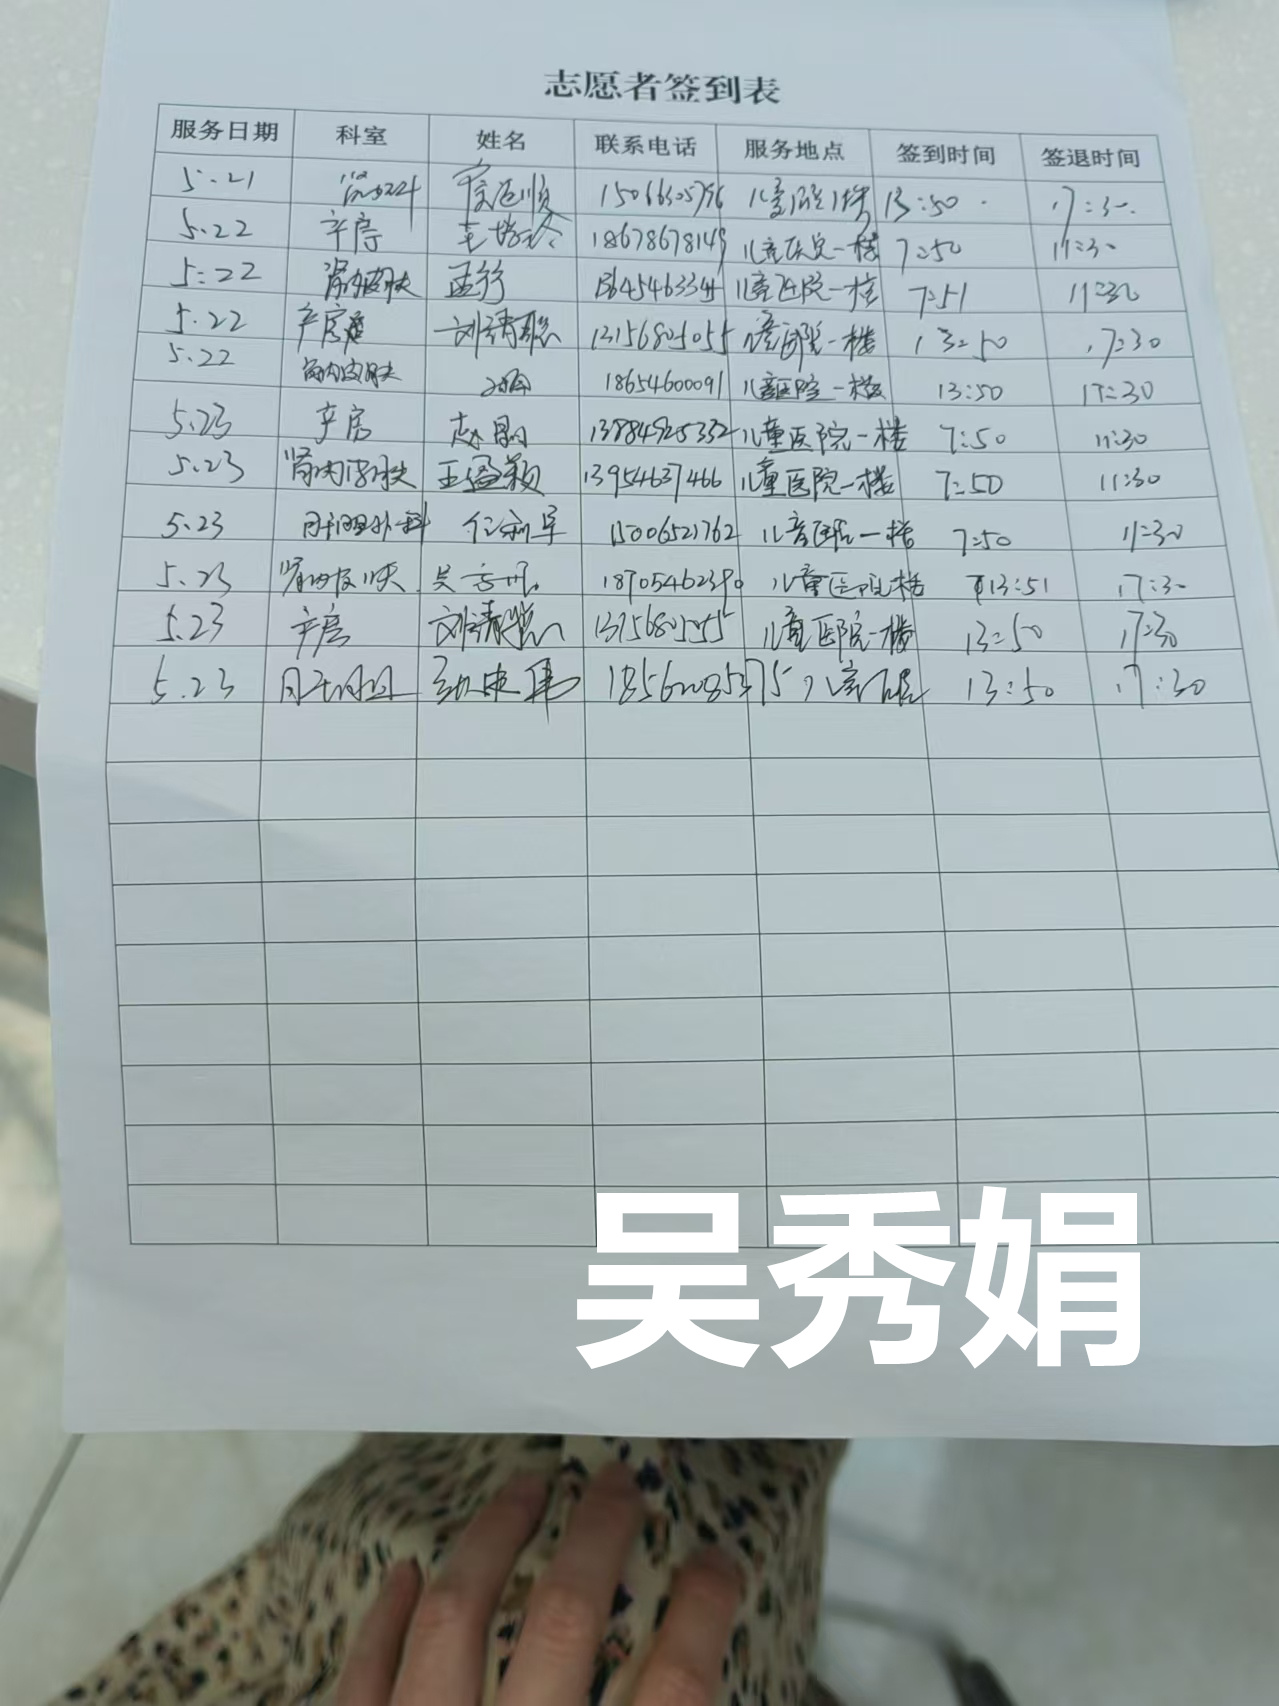 志愿者签到表
服务日期 科室 姓名 联系电话 服务地点 签到时间 签退时间
5.21 15066305796 儿童医院1楼 13:50 17:30
5.22 产房 18678678149 儿童医院一楼 7:50 11:30
5.22 肾内皮肤 孟行 儿童医院一楼 7:51 11:30
5.22 产房 刘清聪 儿童医院一楼 13:50 17:30
5.22 肾内皮肤 18654600091 儿童医院一楼 13:50 17:30
5.23 产房 13884925332 儿童医院一楼 7:50 11:30
5.23 肾内皮肤 王盈颖 13954637466 儿童医院一楼 7:50 11:30
5.23 肝胆外科 15006521762 儿童医院一楼 7:50 11:30
5.23 肾内皮肤 吴 18705462390 儿童医院一楼 13:51 17:30
5.23 产房 刘清聪 儿童医院一楼 13:50 17:30
5.23 肝胆 儿童医院 13:50 17:30
吴秀娟